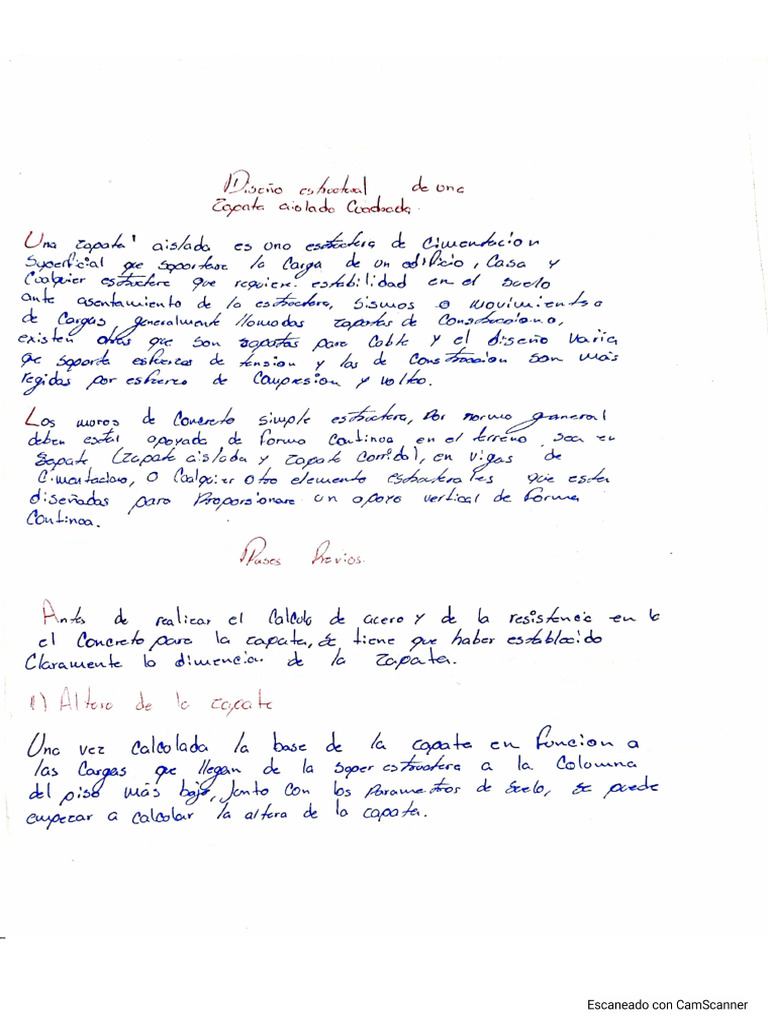 Diseño estructural de una
Zapata aislada Cuadrada.
Una zapata aislada es una estructura de Cimentacion
Superficial que soportase la Carga de un edificio, Casa y
Cualquier estructura que requiere estabilidad en el suelo
ante asentamiento de la estructura, sismos o movimientos
de Cargas generalmente llamadas zapatas de Construcciono,
existen otras que son zapatas para Cable y el diseño varia
que soporta esfuerzos de tension y las de Construccion son más
regidas por esfuerzo de Compresion y volteo.
Los muros de Concreto simple estructura, Por norma general
deben estal apoyada de forma Continua en el terreno sea en
Zapata (zapata aislada y zapata Corrida), en vigas de
Cimentacion, o Cualquier otro elemento estructurales que esten
diseñadas para Proporsionare un apoyo vertical de forma
Continua.
Pasos Previos.
Antes de realizar el Calculo de acero y de la resistencia en la
el Concreto para la zapata, se tiene que haber establecido
Claramente la dimencion de la zapata.
1) Altura de la zapata
Una vez Calculada la base de la zapata en funcion a
las Cargas que llegan de la super estructura a la Columna
del piso más bajo, Junto con los Parametros de Suelo, se puede
empezar a calcular la altura de la zapata.
Escaneado con CamScanner